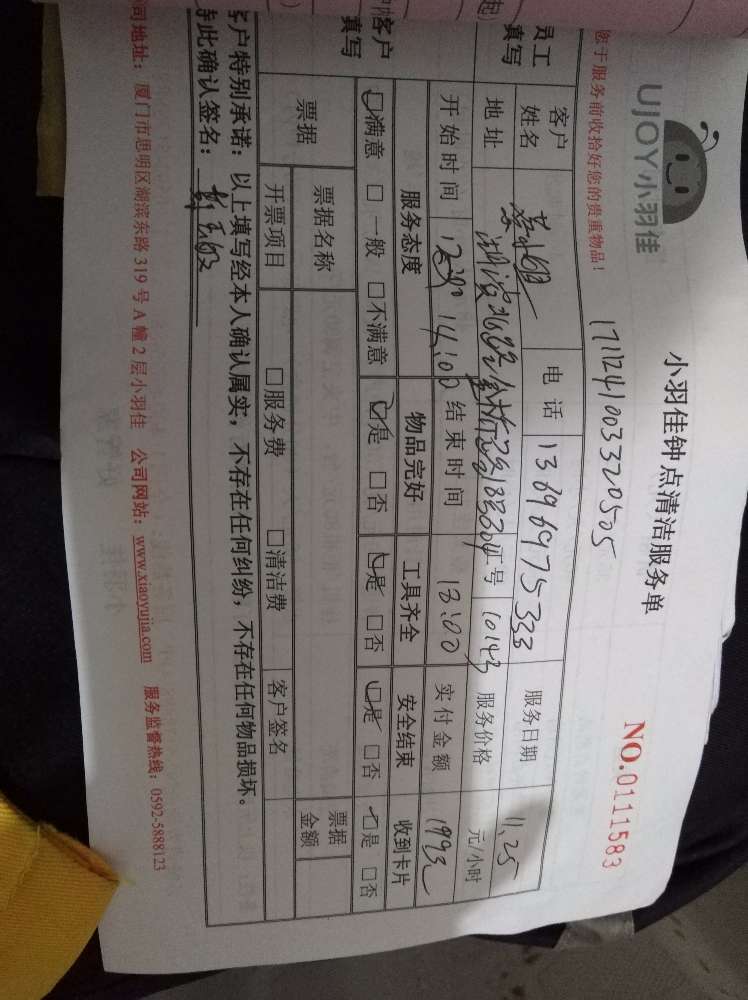 UJOY小羽佳
小羽佳钟点清洁服务单
NO.0111583
您于服务前收拾好您的贵重物品!
1711241003320505
员工填写
客户姓名 电话 13696975323 服务日期 11.25
地址 工号 10143 服务价格 元/小时
开始时间 14:00 结束时间 18:00 实付金额
客户填写
服务态度 物品完好 工具齐全 安全结束 收到卡片
□满意 □一般 □不满意 □是 □否 □是 □否 □是 □否 □是 □否
票据 票据名称 票据金额
开票项目 □服务费 □清洁费 客户签名
客户特别承诺:以上填写经本人确认属实,不存在任何纠纷,不存在任何物品损坏。
特此确认签名:
司地址:厦门市思明区湖滨东路319号A幢2层小羽佳 公司网站:www.xiaoyujia.com 服务监督热线:0592-5888123